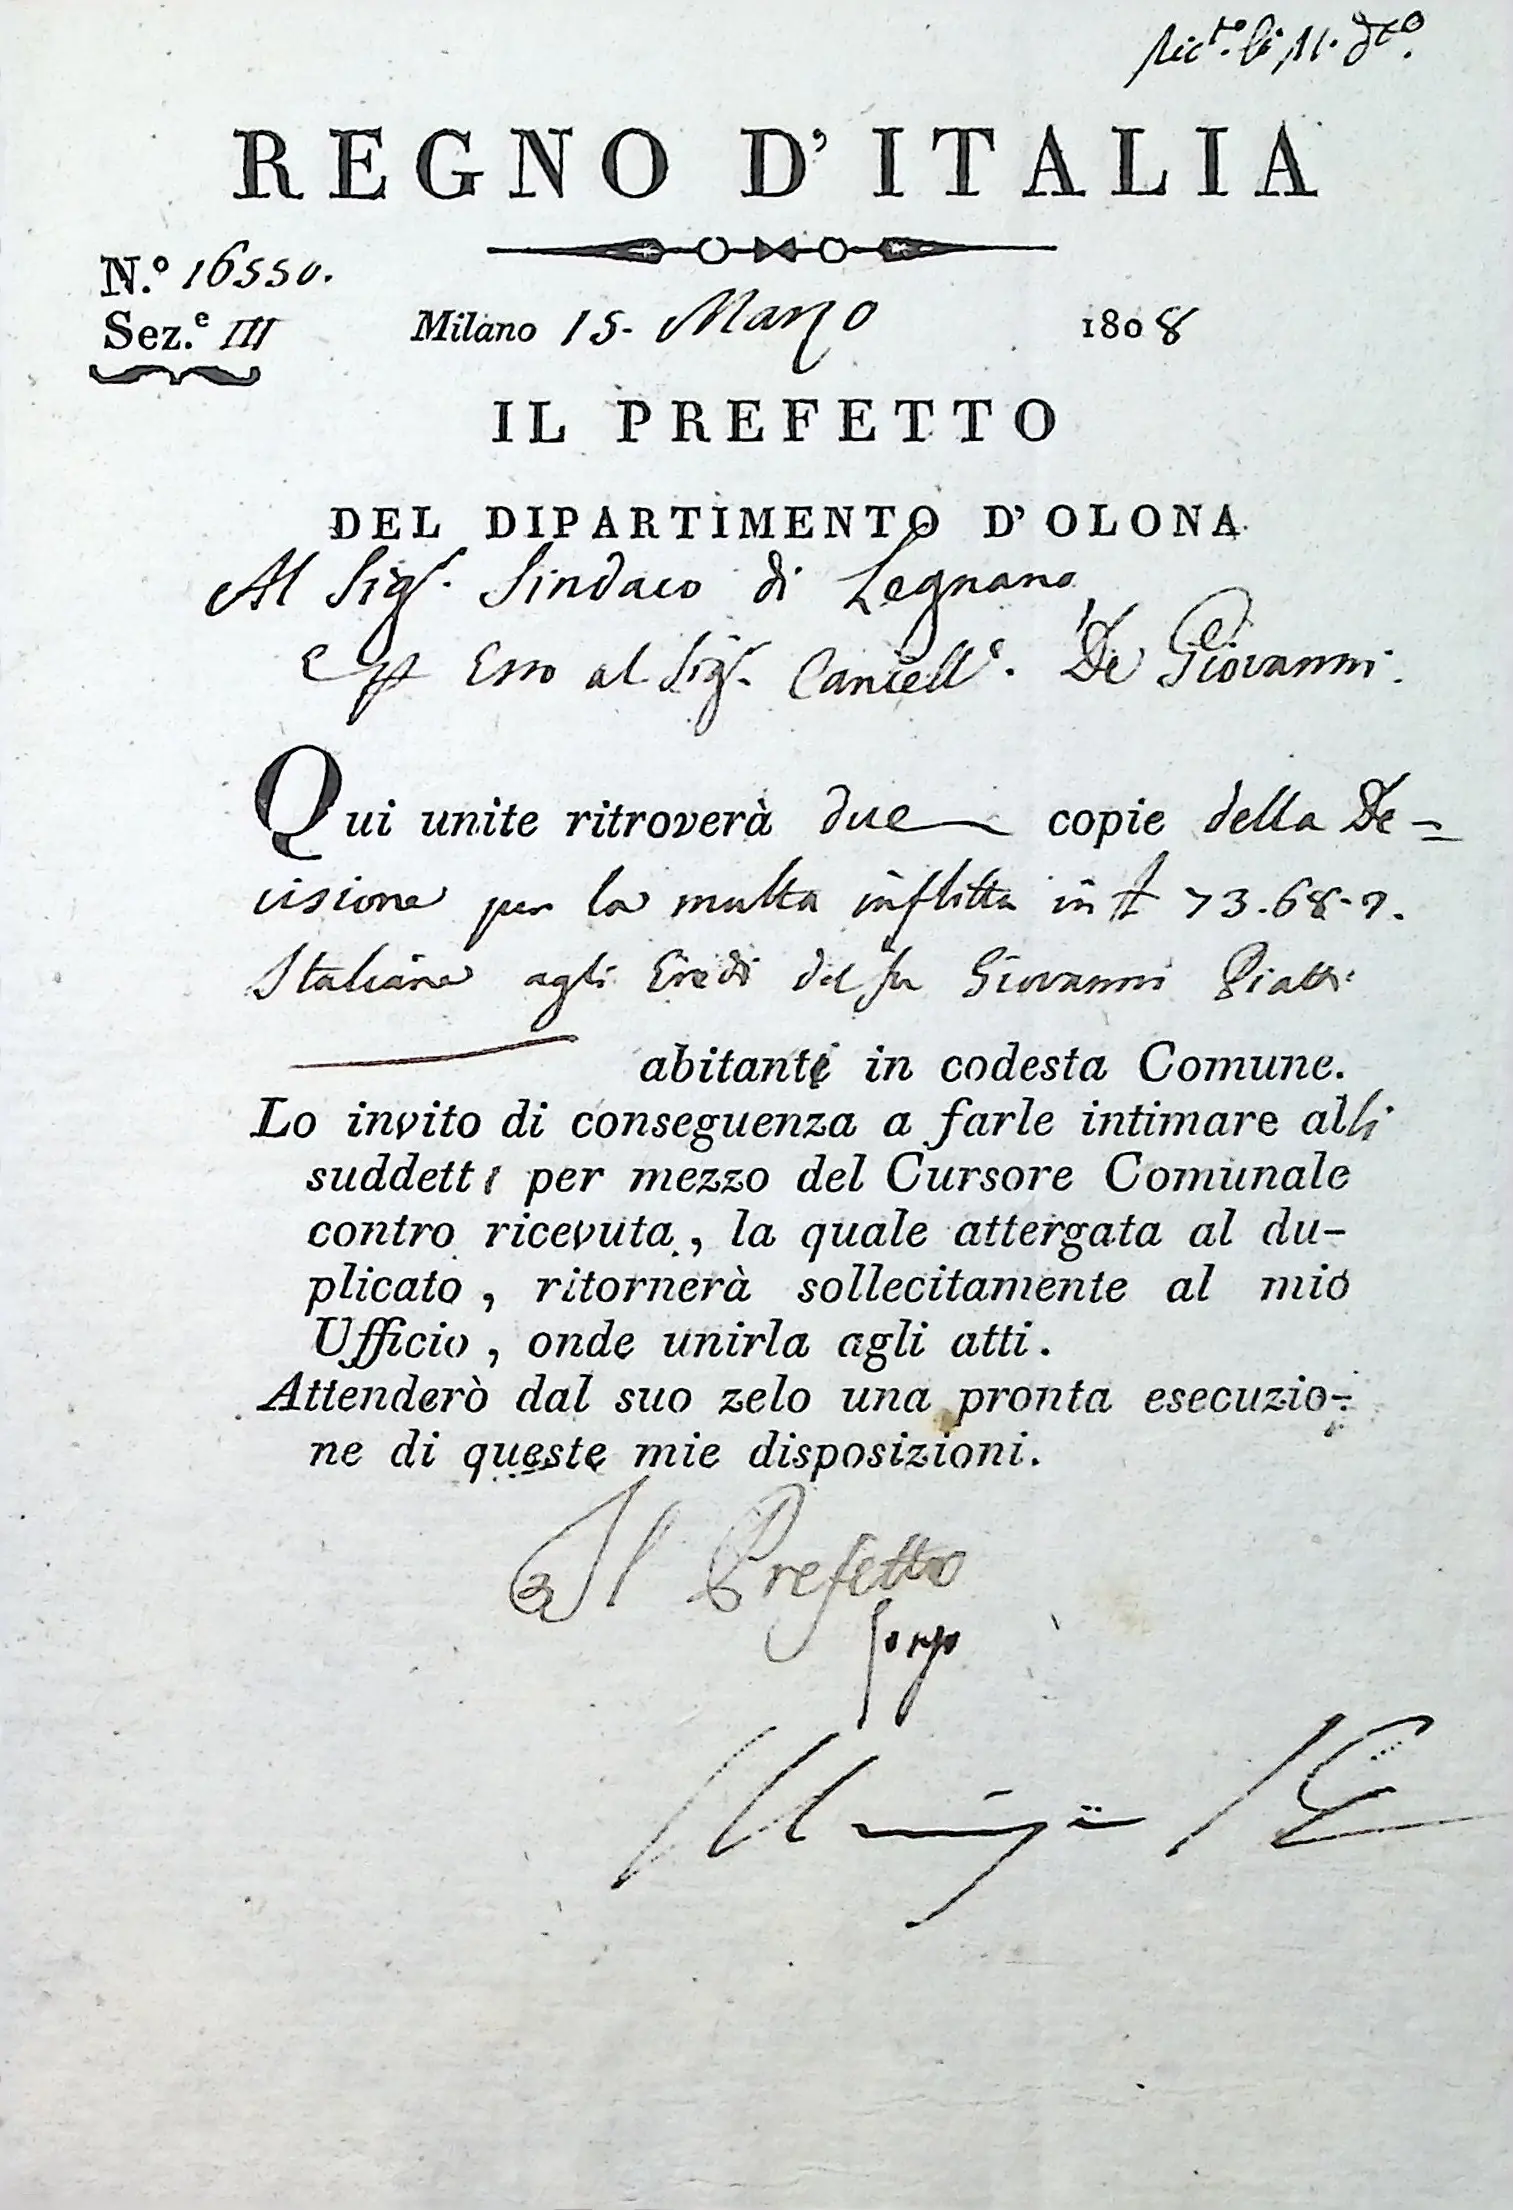 REGNO D'ITALIA
N.º 16550.
Sez.e III
Milano 15. Marzo 1808
IL PREFETTO
DEL DIPARTIMENTO D'OLONA
Al Sigr. Sindaco di Legnano
e Esso al Sigr. Cancelle. De Giovanni.
Qui unite ritroverà due copie della De=
cisione per la multa inflitta in 73.68.
Italiane agli Eredi del fu Giovanni Piatti
abitanti in codesta Comune.
Lo invito di conseguenza a farle intimare alli
suddetti per mezzo del Cursore Comunale
contro ricevuta, la quale attergata al du-
plicato, ritornerà sollecitamente al mio
Ufficio, onde unirla agli atti.
Attenderò dal suo zelo una pronta esecuzio-
ne di queste mie disposizioni.
Il Prefetto